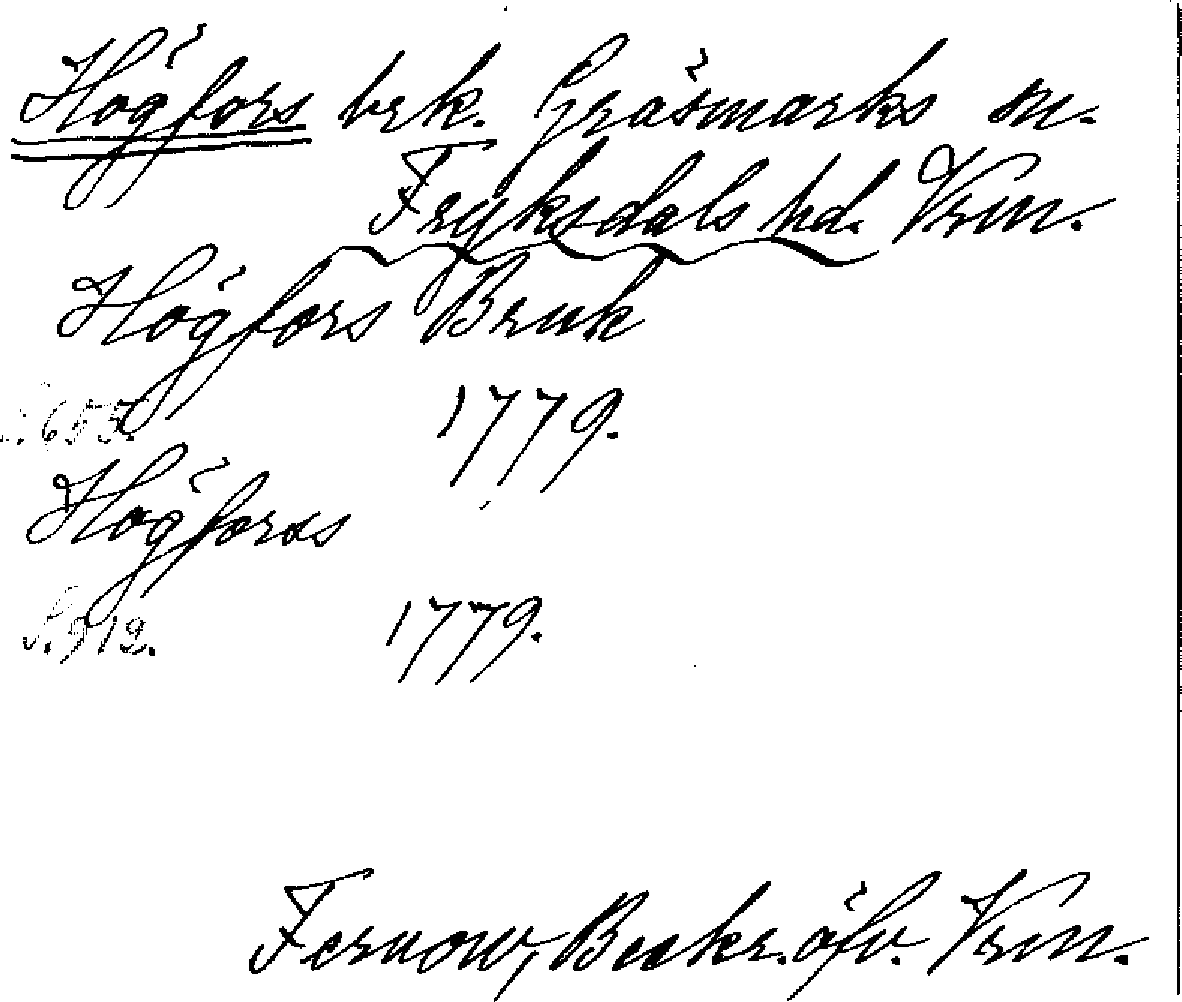 Högfors brk. Gräsmarks sn.
Fryksdals hd. Vrm.
Högfors Bruk
S. 655. 1779.
Högforss
S. 912. 1779.
Fernow, Beskr. öfv. Vrm.